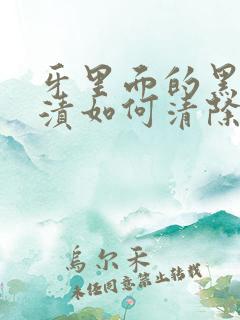 牙里面的黑
渍如何清除
乌尔禾
未经同意禁止转载